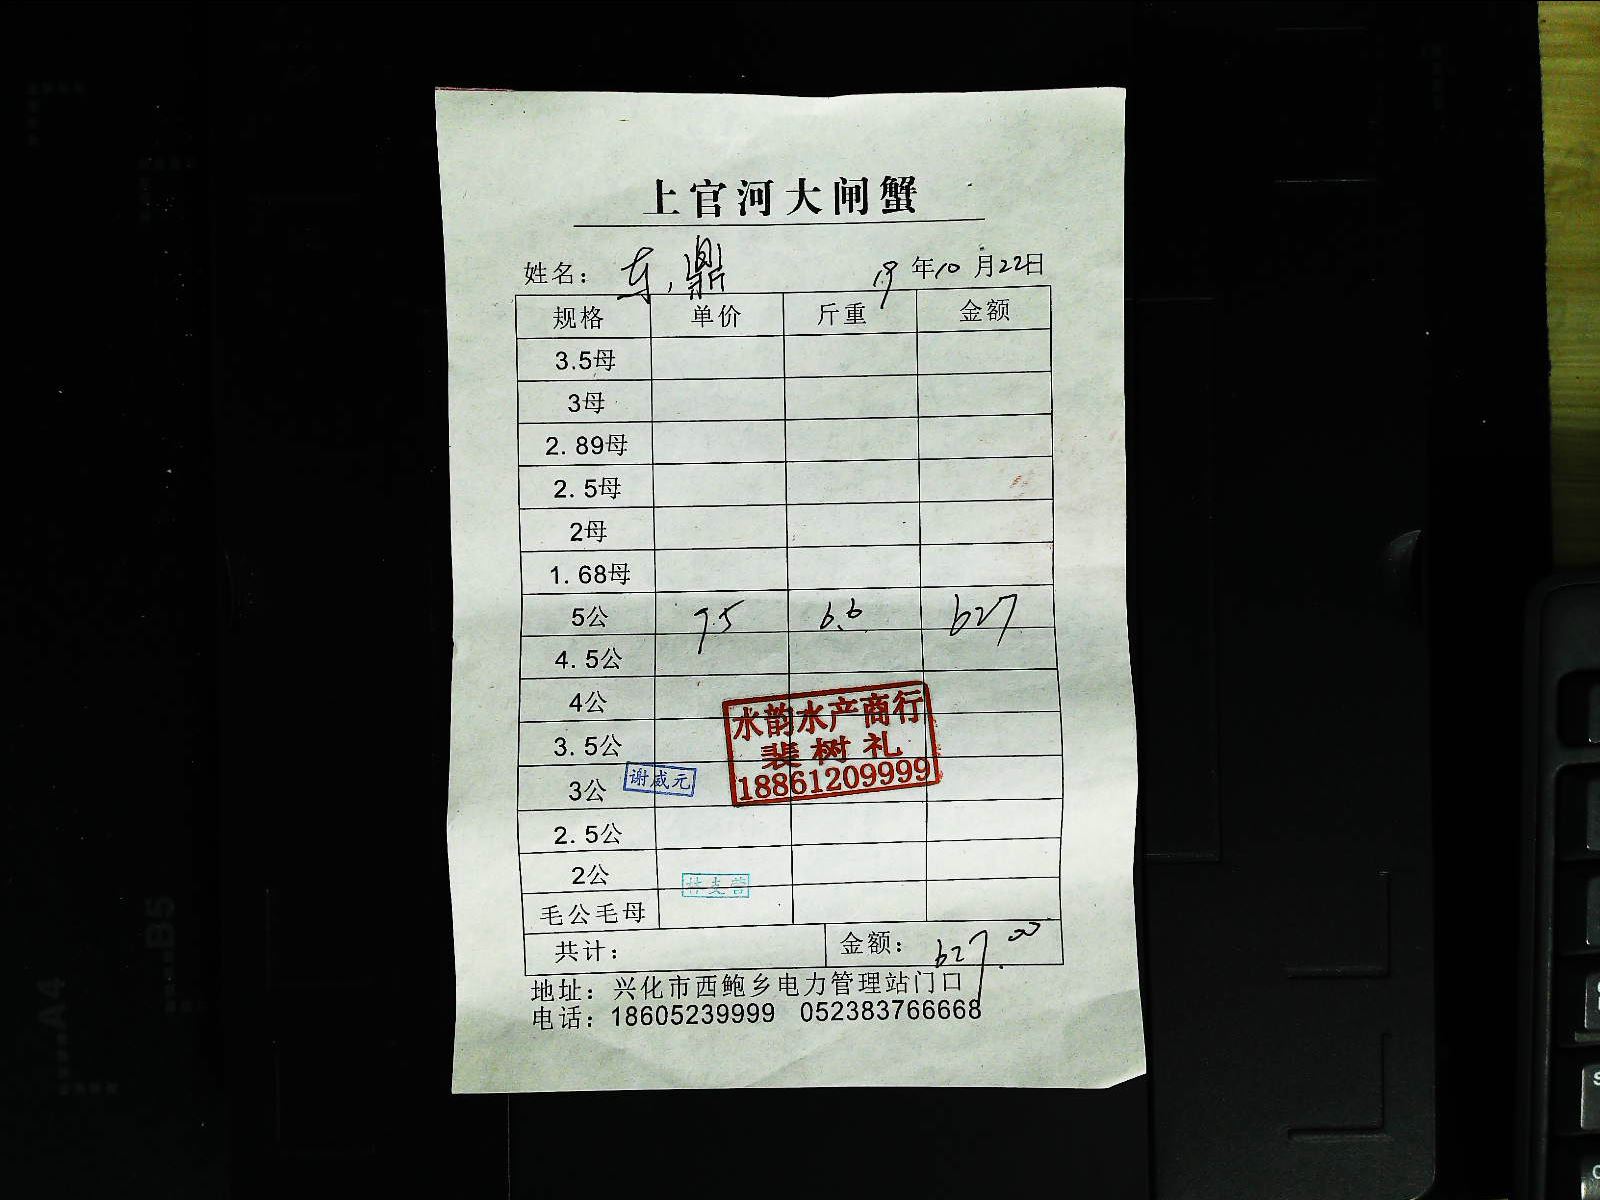 上官河大闸蟹
姓名： 东鼎 19年10月22日
规格 单价 斤重 金额
3.5母
3母
2.89母
2.5母
2母
1.68母
5公 95 6.6 627
4.5公
4公
3.5公
3公
2.5公
2公
毛公毛母
共计： 金额： 627.00
地址：兴化市西鲍乡电力管理站门口
电话：18605239999 052383766668
水韵水产商行
裴树礼
18861209999
谢威元
A4
B5